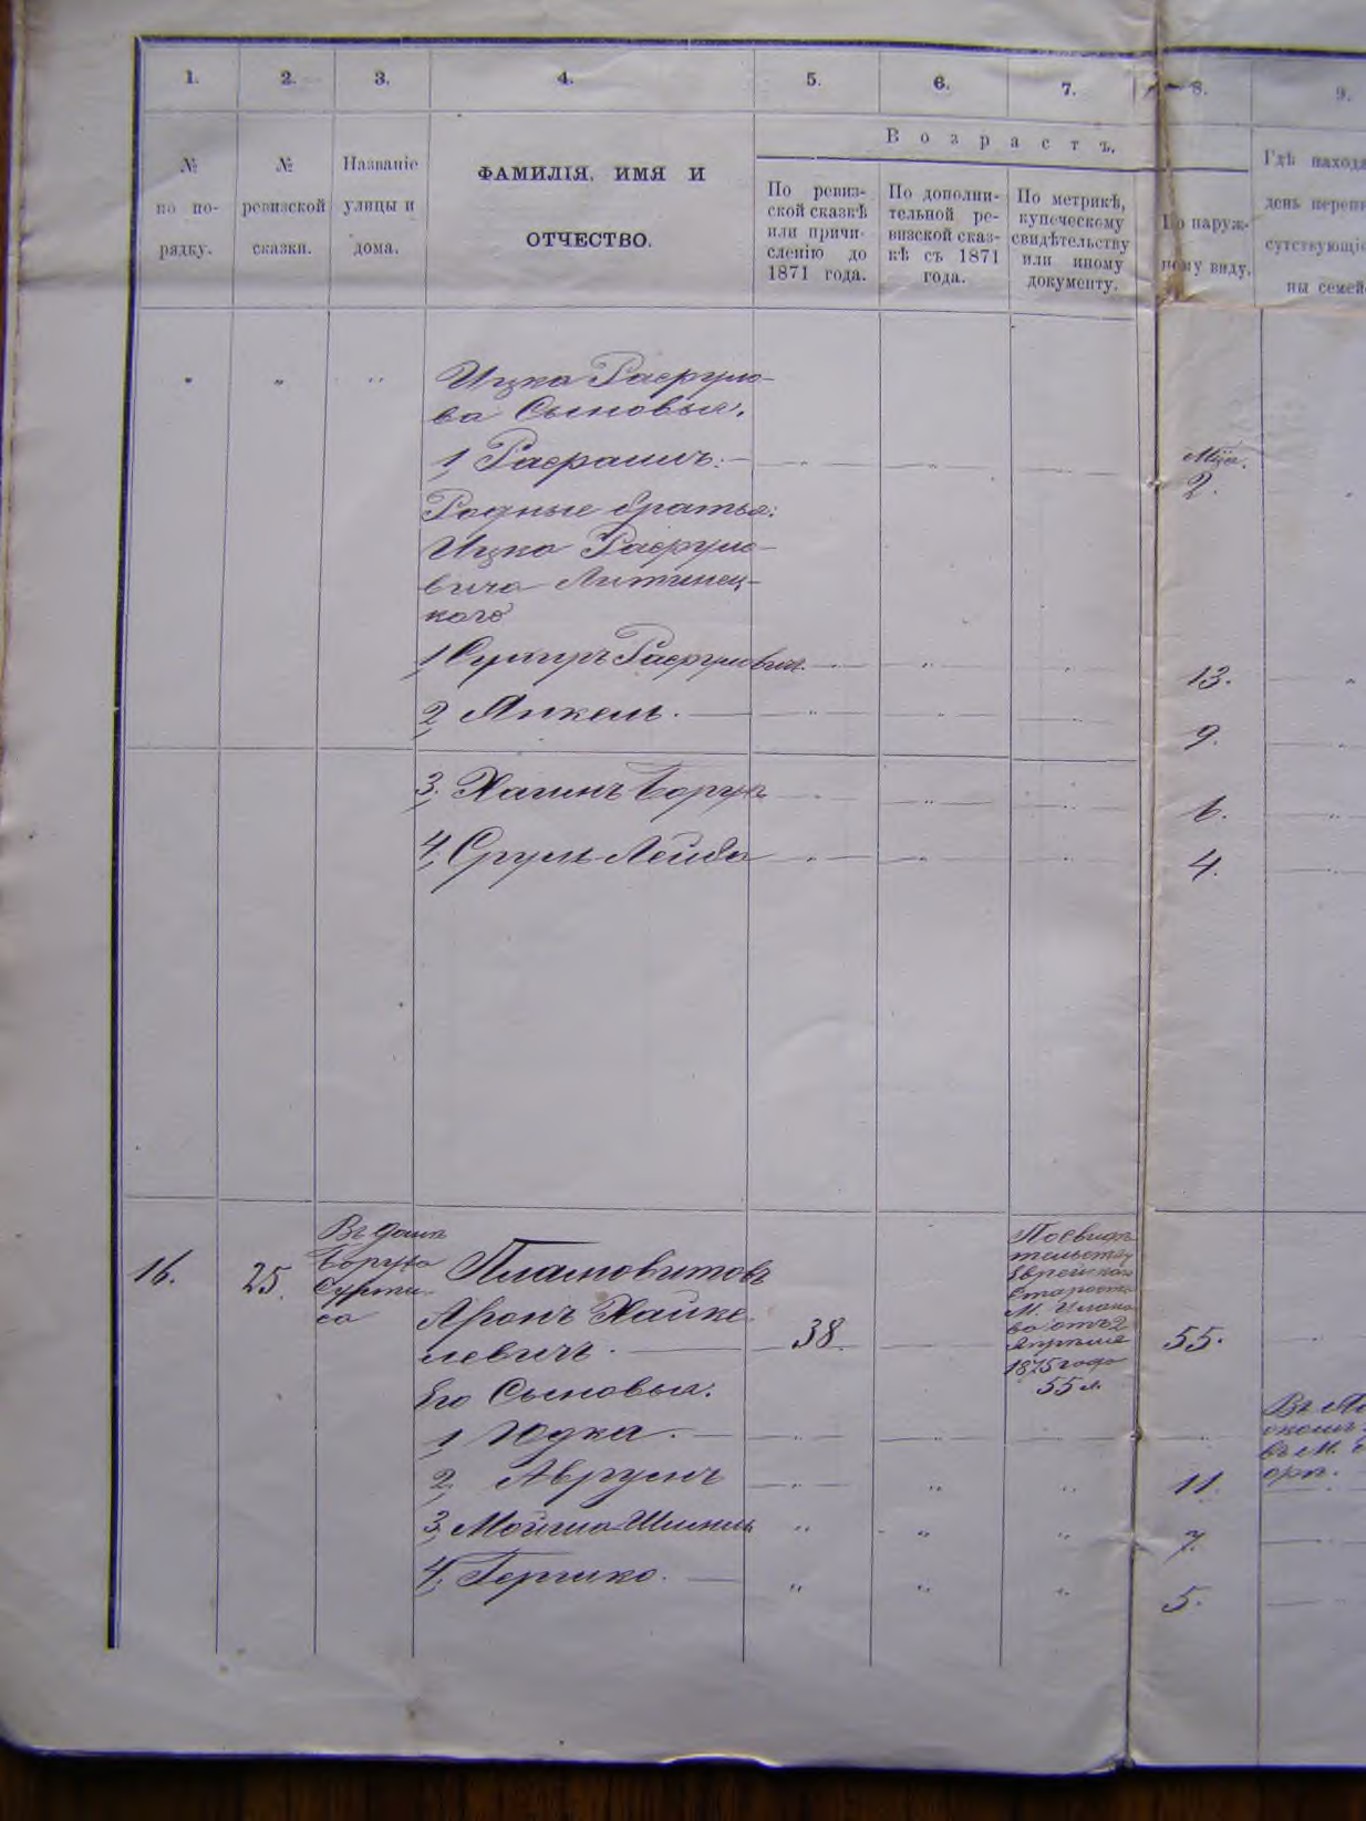 1. 2. 3. 4. 5. 6. 7. 8. 9.
№
по по-
рядку.
№
ревизской
сказки.
Названіе
улицы и
дома.
ФАМИЛІЯ, ИМЯ И
ОТЧЕСТВО.
Возрастъ.
По ревиз-
ской сказкѣ
или причи-
сленію до
1871 года.
По дополни-
тельной ре-
визской сказ-
кѣ съ 1871
года.
По метрикѣ,
купеческому
свидѣтельству
или иному
документу.
По наруж-
ному виду.
Гдѣ наход
день переп
сутствующі
ны семей
Ицка
ва Сыновья.
1, 2.
Родные братья:
Ицка
вича Литинец-
кого
1 13.
2, Янкель. 9.
3, Хаимъ Борухъ 6.
4, Сруль Лейба 4.
16.
25.
Въ домѣ
Боруха
Плановитовъ
Аронъ Хайке
левичъ. 38. 55.
Еврейскаго
Старосты
М.
во отъ 2
Апрѣля
1875 года
55 л.
Его Сыновья:
1 Юдка.
2, Аврумъ 11.
3, Мойша 7.
4, Гершко. 5.
въ М.